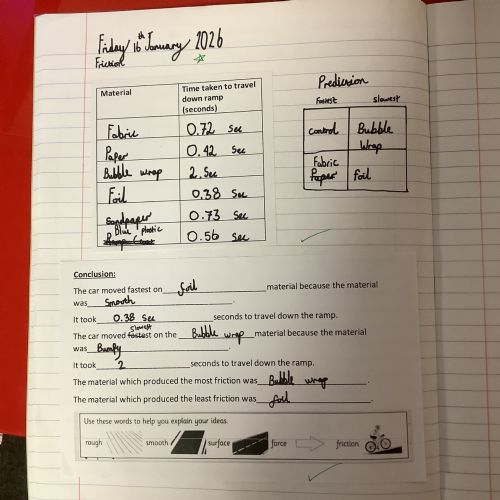 Friday 16th January 2026
Friction
Material Time taken to travel down ramp (seconds)
Fabric 0.72 Sec
Paper 0.42 Sec
Bubble wrap 2. Sec
Foil 0.38 Sec
Sandpaper 0.73 Sec
Blue plastic 0.56 Sec
Prediction
Fastest slowest
control Bubble Wrap
Fabric
Paper foil
Conclusion:
The car moved fastest on foil material because the material
was Smooth.
It took 0.38 Sec seconds to travel down the ramp.
The car moved fastest slowest on the Bubble wrap material because the material
was Bumpy.
It took 2 seconds to travel down the ramp.
The material which produced the most friction was Bubble wrap.
The material which produced the least friction was foil.
Use these words to help you explain your ideas.
rough smooth surface force friction